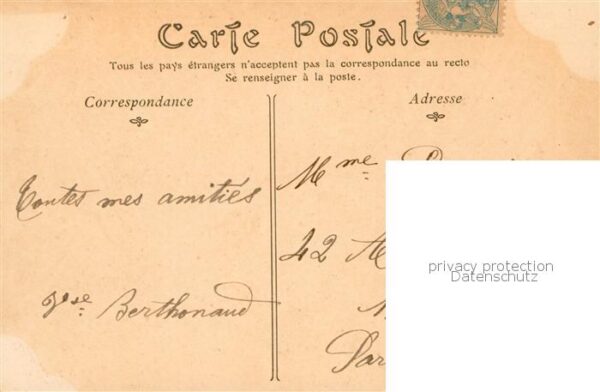 Carte Postale
Tous les pays étrangers n'acceptent pas la correspondance au recto
Se renseigner à la poste.
Correspondance
Adresse
Toutes mes amitiés
Vse Berthonaud
Mme
42
Par
privacy protection
Datenschutz